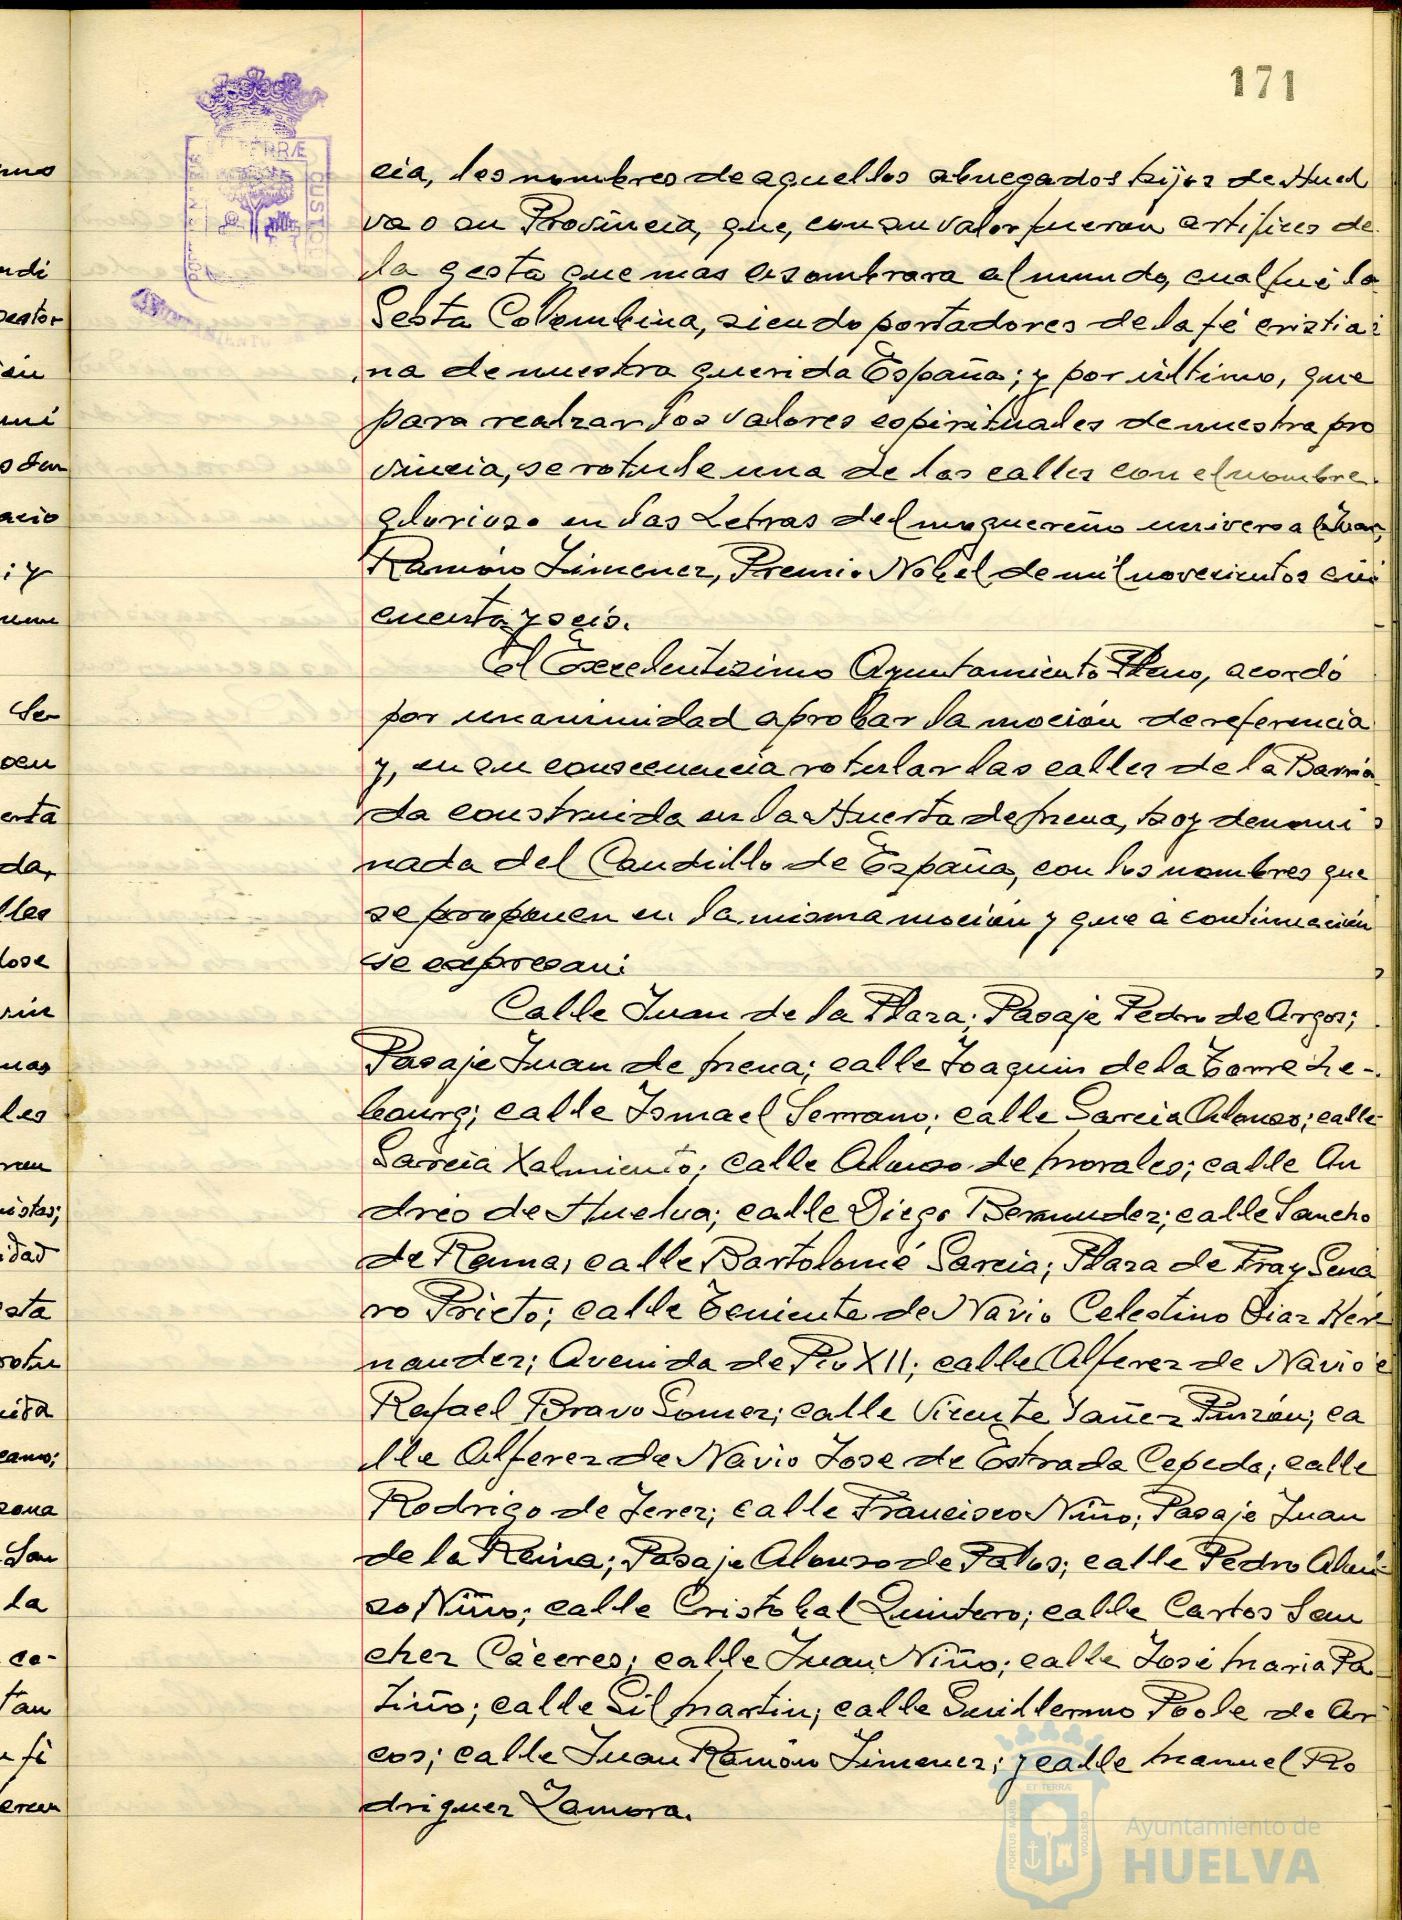 171
cia, los nombres de aquellos abnegados hijos de Huel
va o su Provincia, que, con su valor fueron artifices de
la gesta que mas asombrara al mundo, cual fué la
Gesta Colombina, siendo portadores de la fé cristia
na de nuestra querida España; y por último, que
para realzar los valores espirituales de nuestra pro
vincia, se rotule una de las calles con el nombre
glorioso en las Letras del moguereño universal Juan
Ramón Jimenez, Premio Nobel de mil novecientos cin
cuenta y seis.
El Excelentisimo Ayuntamiento Pleno, acordó
por unanimidad aprobar la moción de referencia
y, en su consecuencia rotular las calles de la Barria
da construida en la Huerta de Mena, hoy denomi
nada del Caudillo de España, con los nombres que
se proponen en la misma moción y que a continuación
se expresan:
Calle Juan de la Plaza; Pasaje Pedro de Argos;
Pasaje Juan de Mena; calle Joaquin de la Torre Le-
bourg; calle Ismael Serrano; calle Garcia Alonso; calle
Garcia Xalmiento; calle Alonso de Morales; calle An
dres de Huelva; calle Diego Bermudez; calle Sancho
de Rama; calle Bartolomé Garcia; Plaza de Fray Gena
ro Prieto; calle Teniente de Navio Celestino Diaz Her
nandez; Avenida de Pio XII; calle Alferez de Navio
Rafael Bravo Gomez; calle Vicente Yañez Pinzón; ca
lle Alferez de Navio Jose de Estrada Cepeda; calle
Rodrigo de Jerez; calle Francisco Niño; Pasaje Juan
de la Reina; Pasaje Alonso de Palos; calle Pedro Alon
so Niño; calle Cristobal Quintero; calle Carlos San
chez Cáceres; calle Juan Niño; calle José Maria Pa
tiño; calle Gil Martin; calle Guillermo Poole de Ar
cos; calle Juan Ramón Jimenez; y calle Manuel Ro
driguez Zamora.
Ayuntamiento de
HUELVA